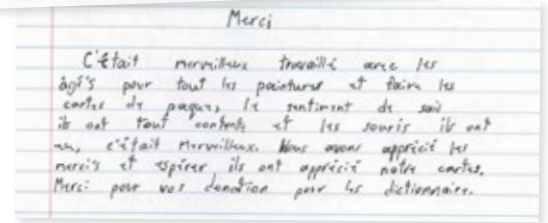 Merci
C'était merveilleux travaillé avec les
âgé's pour tout les peintures et faire les
cartes de paques, le sentiment de sais
ils ont tout contents et les souris ils ont
eu, c'était merveilleux. Nous avons apprécié les
merci's et espérer ils ont apprécié notre cartes.
Merci pour vos donation pour les dictionnaire.